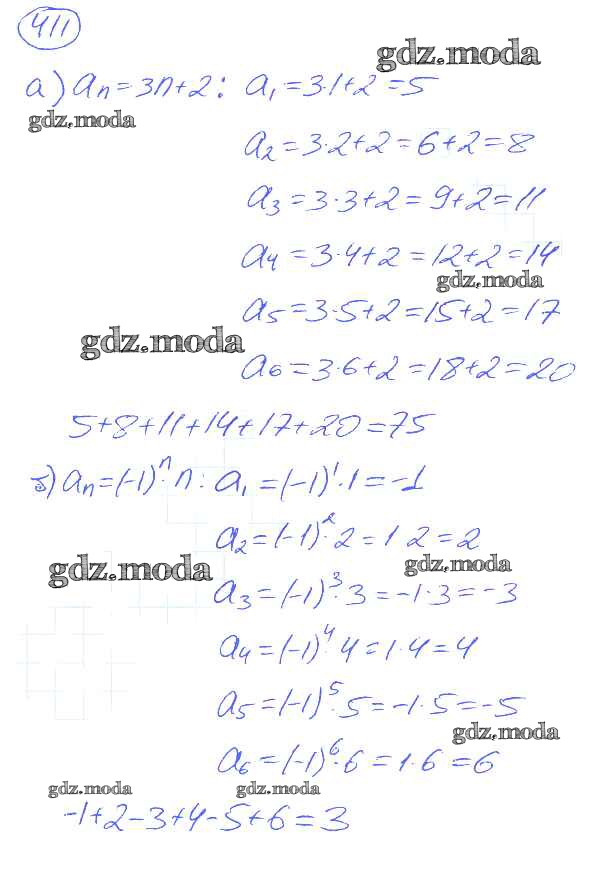 411
gdz.moda
а) aₙ=3n+2: a₁=3·1+2=5
gdz.moda
a₂=3·2+2=6+2=8
a₃=3·3+2=9+2=11
a₄=3·4+2=12+2=14
gdz.moda
a₅=3·5+2=15+2=17
gdz.moda
a₆=3·6+2=18+2=20
5+8+11+14+17+20=75
б) aₙ=(-1)ⁿ·n: a₁=(-1)¹·1=-1
a₂=(-1)²·2=1·2=2
gdz.moda gdz.moda
a₃=(-1)³·3=-1·3=-3
a₄=(-1)⁴·4=1·4=4
a₅=(-1)⁵·5=-1·5=-5
gdz.moda
a₆=(-1)⁶·6=1·6=6
gdz.moda gdz.moda
-1+2-3+4-5+6=3